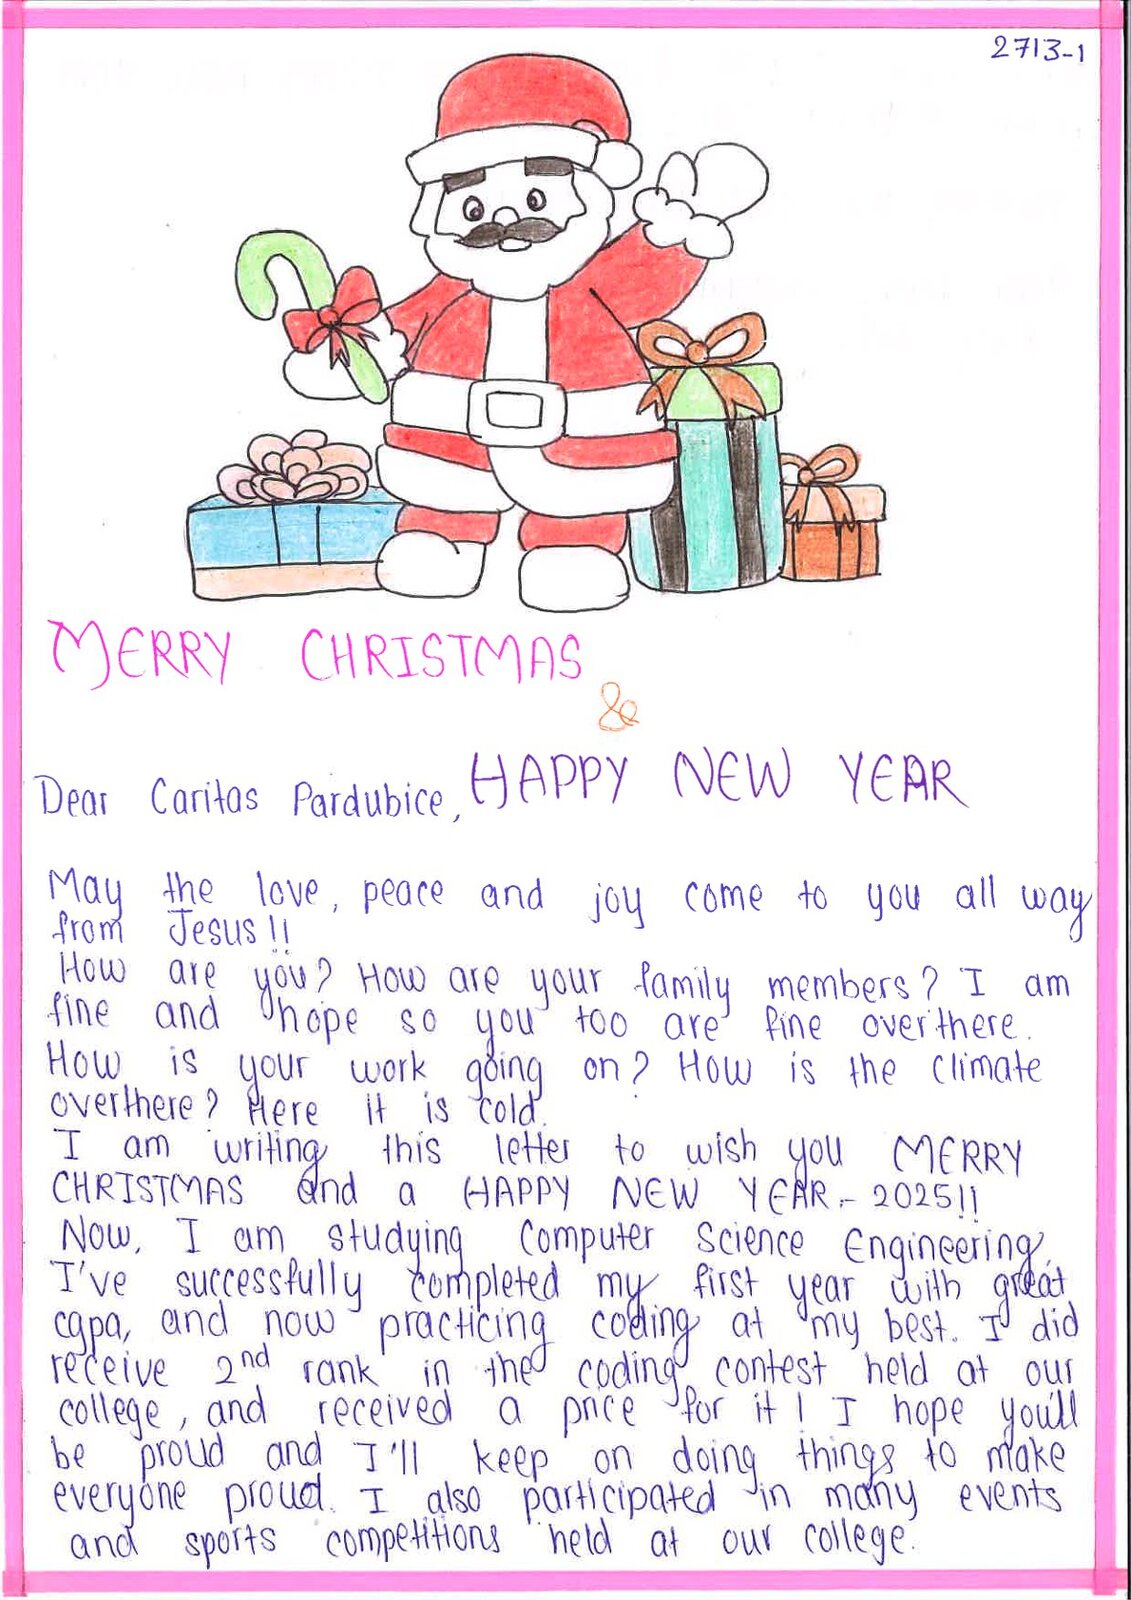 2713-1
MERRY CHRISTMAS
&
HAPPY NEW YEAR
Dear Caritas Pardubice,
May the love, peace and joy come to you all way
from Jesus!!
How are you? How are your family members? I am
fine and hope so you too are fine overthere.
How is your work going on? How is the climate
overthere? Here it is cold.
I am writing this letter to wish you MERRY
CHRISTMAS and a HAPPY NEW YEAR - 2025!!
Now, I am studying Computer Science Engineering,
I've successfully completed my first year with great
cgpa, and now practicing coding at my best. I did
receive 2nd rank in the coding contest held at our
college, and received a price for it! I hope you'll
be proud and I'll keep on doing things to make
everyone proud. I also participated in many events
and sports competitions held at our college.